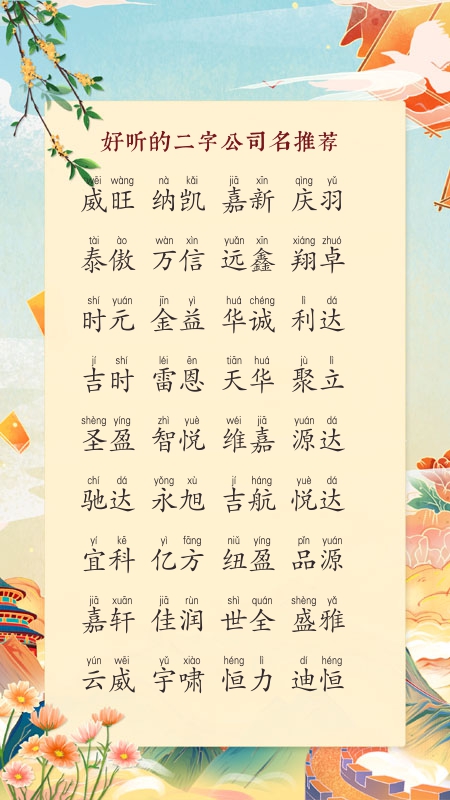 好听的二字公司名推荐
wēi wàng nà kǎi jiā xīn qìng yǔ
威旺 纳凯 嘉新 庆羽
tài ào wàn xìn yuǎn xīn xiáng zhuó
泰傲 万信 远鑫 翔卓
shí yuán jīn yì huá chéng lì dá
时元 金益 华诚 利达
jí shí léi ēn tiān huá jù lì
吉时 雷恩 天华 聚立
shèng yíng zhì yuè wéi jiā yuán dá
圣盈 智悦 维嘉 源达
chí dá yǒng xù jí háng yuè dá
驰达 永旭 吉航 悦达
yí kē yì fāng niǔ yíng pǐn yuán
宜科 亿方 纽盈 品源
jiā xuān jiā rùn shì quán shèng yǎ
嘉轩 佳润 世全 盛雅
yún wēi yǔ xiào héng lì dí héng
云威 宇啸 恒力 迪恒